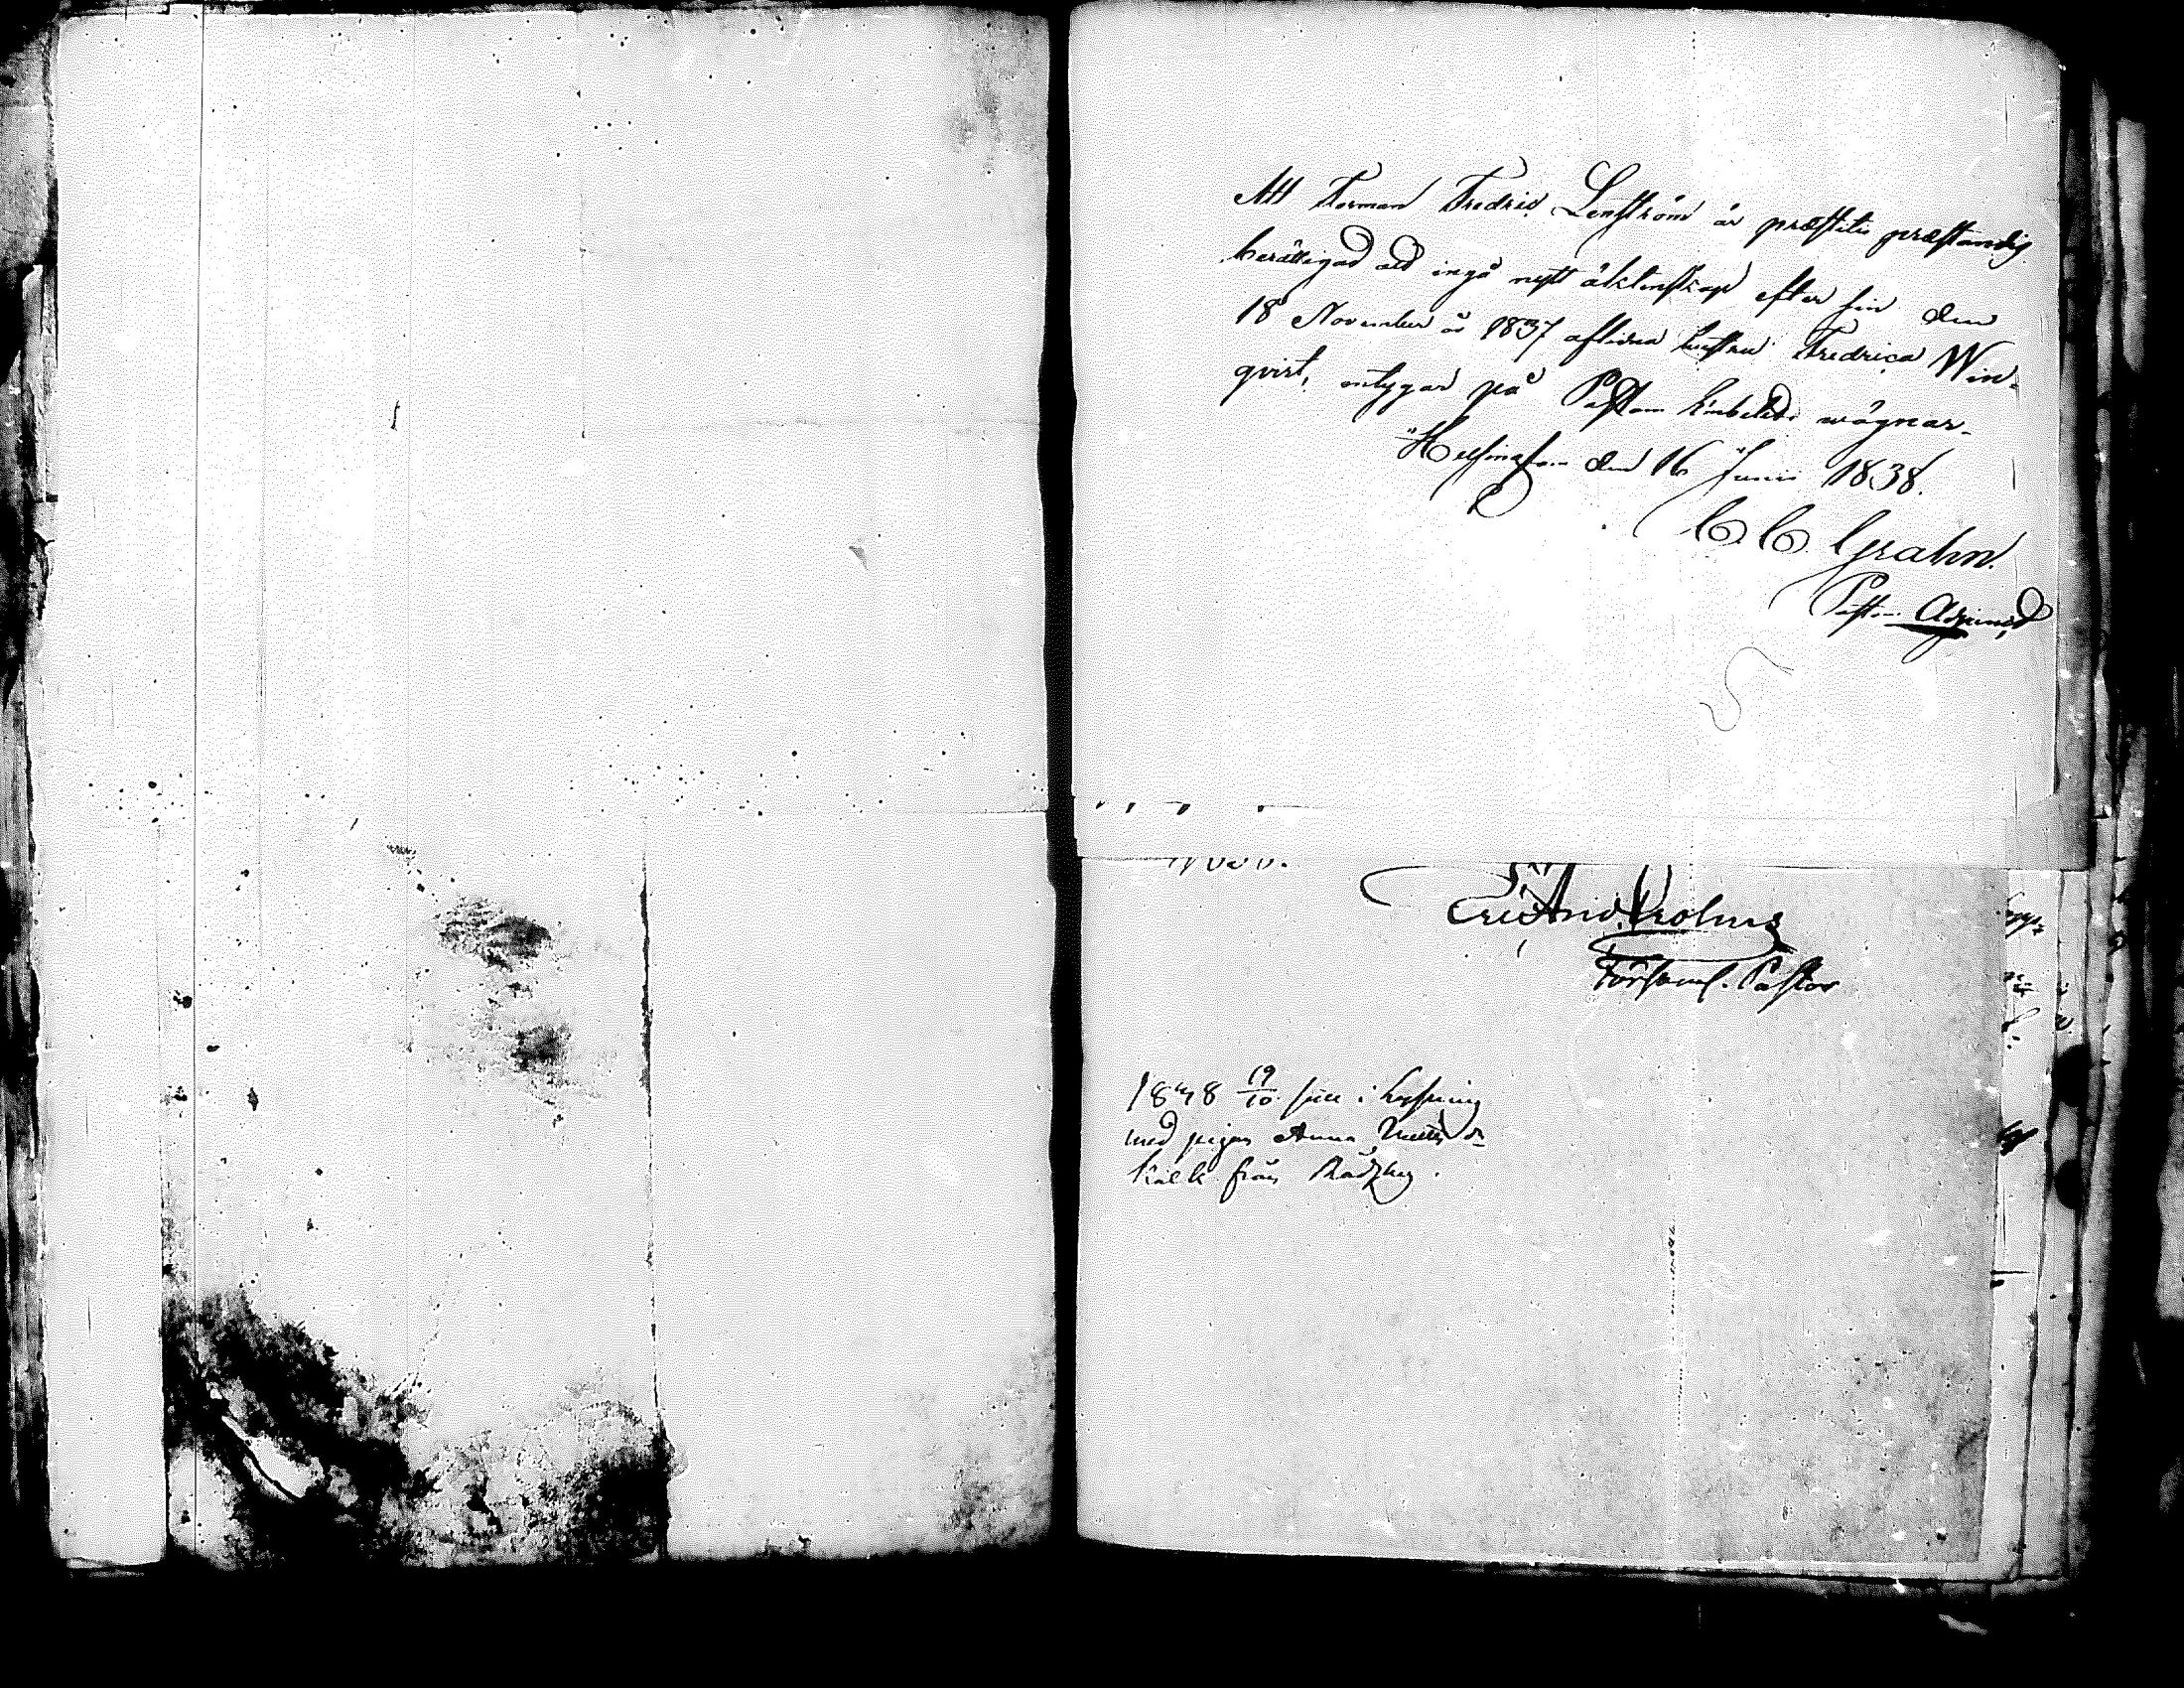 Att Forman Fredric Lenström är præstitis præstandis
berättigad att ingå nytt äktenskap efter sin den
18 November år 1837 aflidna hustru Fredrica Win-
qvist, intygar på Pastors Embetets wägnar.
Helsingfors den 16 Junii 1838.
C. C. Grahn.
Pastors Adjunct
Eric And.
Församl. Pastor
1848 19/10 i lysning
med pigan Anna
från